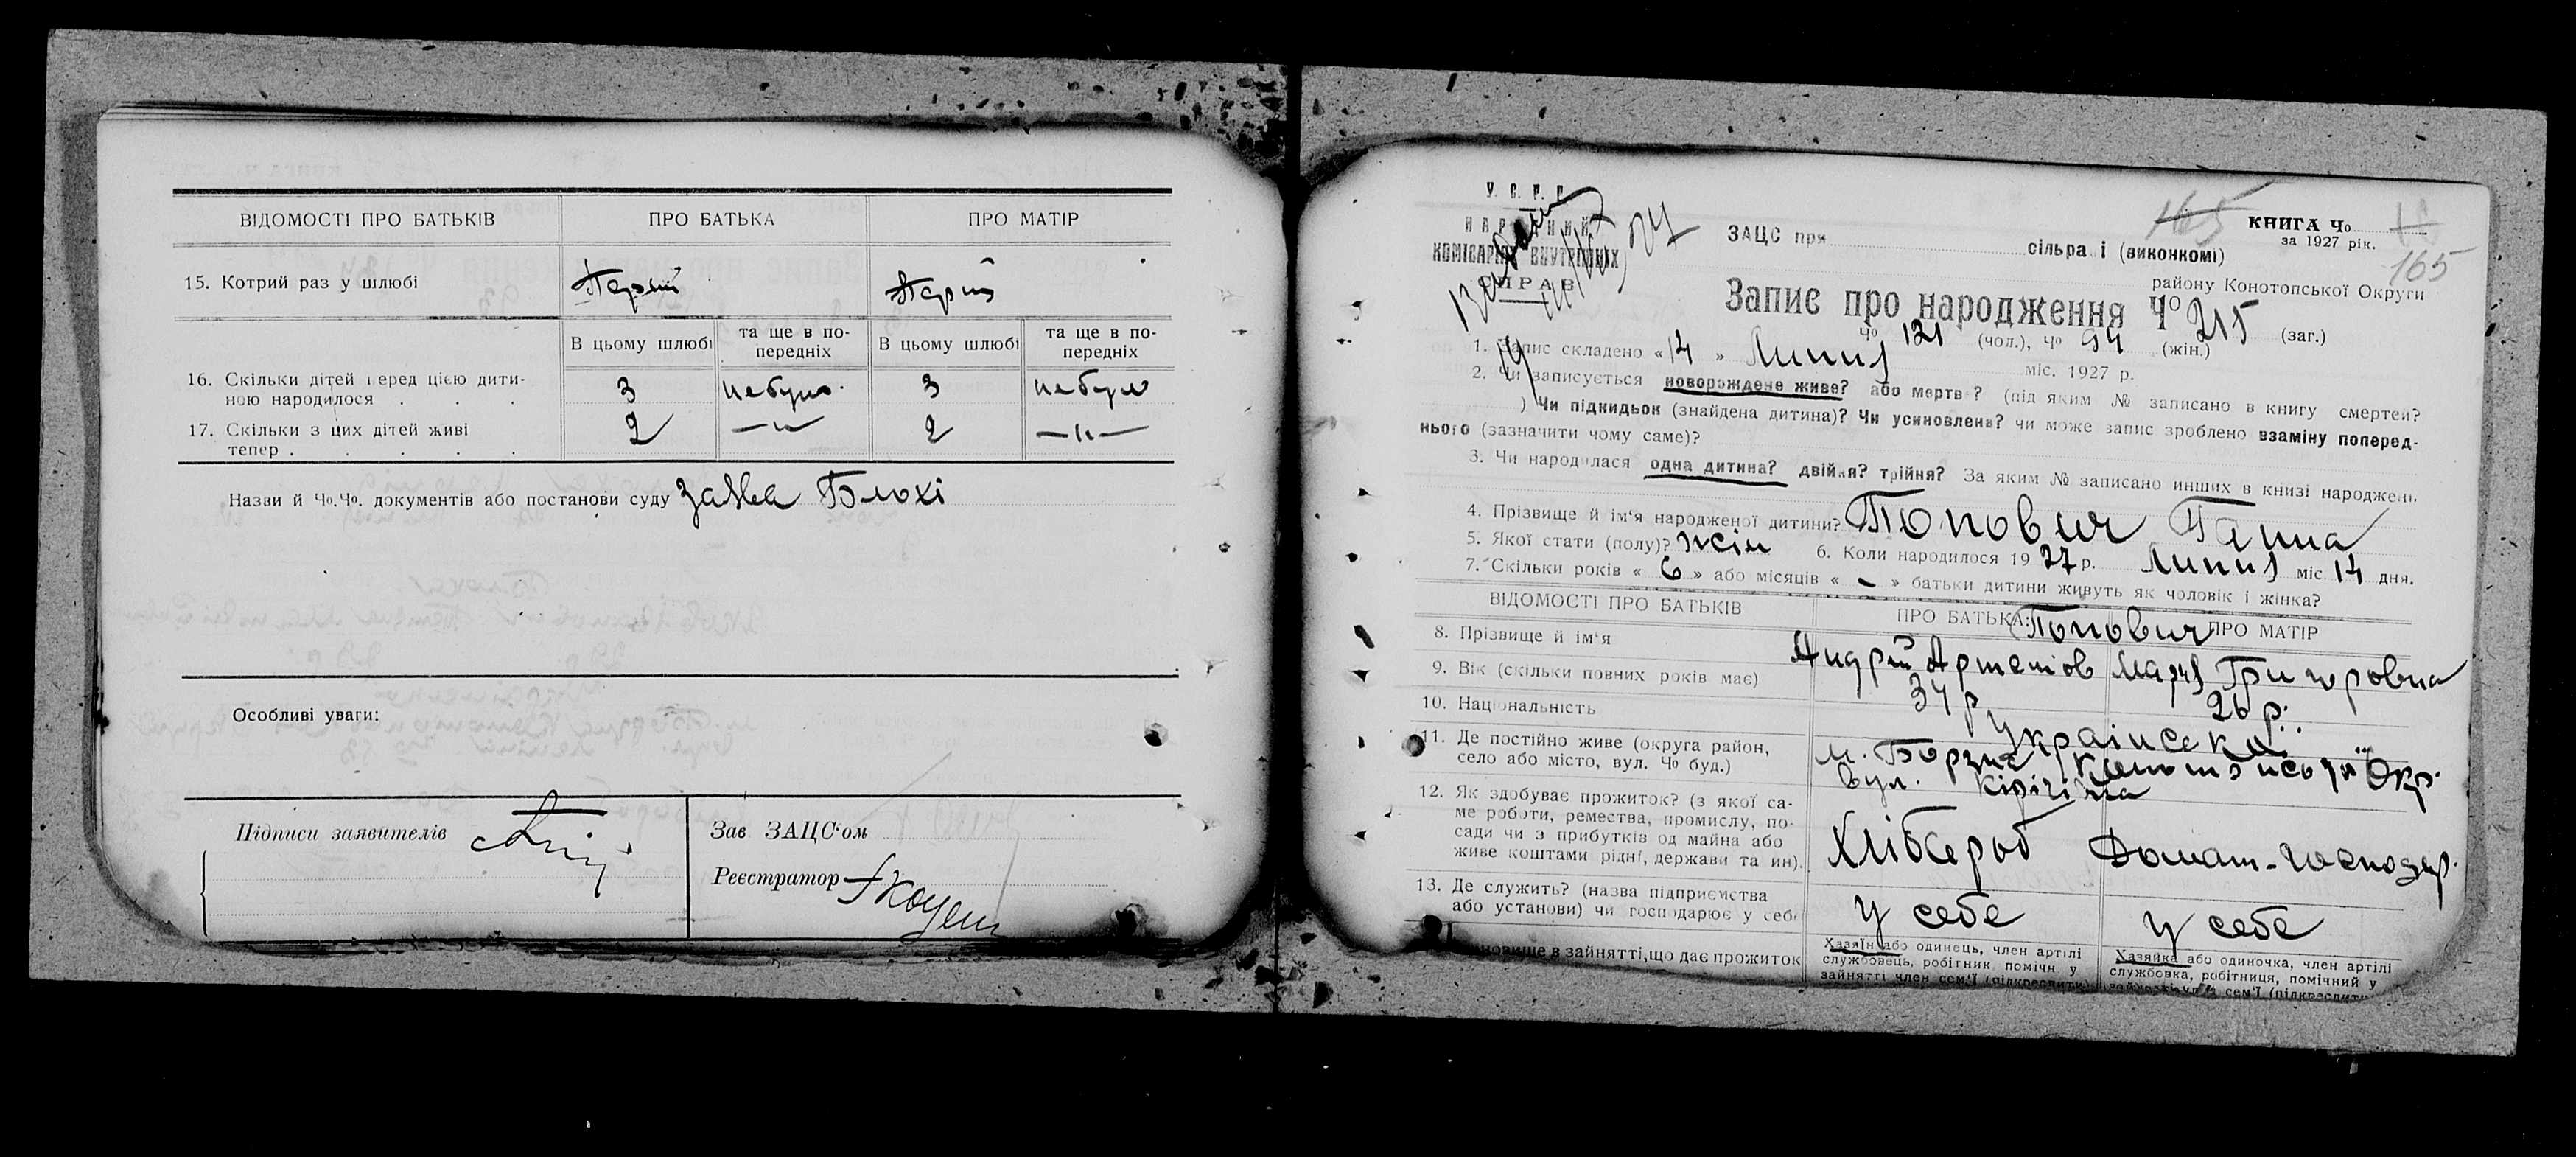 ВІДОМОСТІ ПРО БАТЬКІВ ПРО БАТЬКА ПРО МАТІР
15. Котрий раз у шлюбі Перший Перш
В цьому шлюбі та ще в по- В цьому шлюбі та ще в по-
передніх передніх
16. Скільки дітей перед цією дити-
ною народилося . . . 3 небуло 3 небуло
17. Скільки з цих дітей живі
тепер . . . . . 2 —"— 2 —"—
Назви й Чо.Чо. документів або постанови суду Заява Блохі
Особливі уваги:
Підписи заявителів
Зав. ЗАЦС'ом
Реєстратор
У. С. Р. Р.
НАРОДНИЙ
КОМІСАРІЯТ ВНУТРІШНІХ
СПРАВ
165 КНИГА Чо
за 1927 рік.
165
ЗАЦС при сільраді (виконкомі)
району Конотопської Округи
Запис про народження Чо 215 (заг.)
Чо 121 (чол.), Чо 94 (жін.)
1. Запис складено «14» Липня міс. 1927 р.
2. Чи записується новорождене живе? або мертве? (під яким № записано в книгу смертей?
) Чи підкидьок (знайдена дитина)? Чи усиновлена? чи може запис зроблено взаміну поперед-
нього (зазначити чому саме)?
3. Чи народилася одна дитина? двійня? трійня? За яким № записано инших в книзі народжень
4. Прізвище й ім'я народженої дитини? Попович Ганна
5. Якої стати (полу)? жін 6. Коли народилося 1927 р. Липня міс. 14 дня.
7. Скільки років «6» або місяців «-» батьки дитини живуть як чоловік і жінка?
ВІДОМОСТІ ПРО БАТЬКІВ ПРО БАТЬКА: ПРО МАТІР
Попович
8. Прізвище й ім'я Андрій Артемов Марія Григоровна
9. Вік (скільки повних років має) 34 р 26 р.
10. Національність Українські
11. Де постійно живе (округа район, м. Борзна Конотопсько Окр.
село або місто, вул. Чо буд.) вул.
12. Як здобуває прожиток? (з якої са-
ме роботи, ремества, промислу, по-
сади чи з прибутків од майна або
живе коштами рідні, держави та ин). Хлібороб Домаш-господар.
13. Де служить? (назва підприємства
або установи) чи господарює у себе у себе у себе
зайнятті, що дає прожиток
Хазяїн або одинець, член артілі
службовець, робітник, помічн у
зайнятті член сем'ї (підкреслити)
Хазяйка або одиночка, член артілі
службовка, робітниця, помічний у
сем'ї (підкреслити